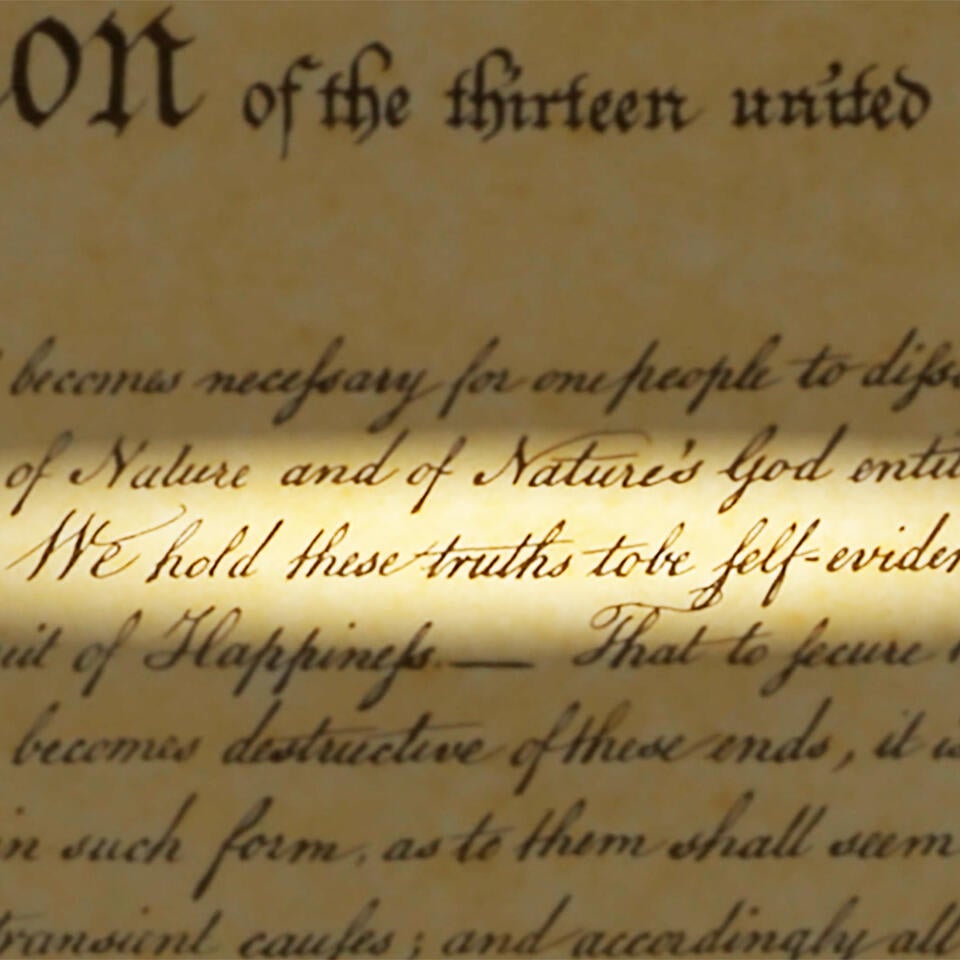 on of the thirteen united
becomes neceſsary for one people to diſs
of Nature and of Nature's God entit
We hold these truths to be ſelf-eviden
uit of Happineſs.— That to ſecure
becomes destructive of these ends, it is
in such form, as to them shall seem
transient cauſes; and accordingly all